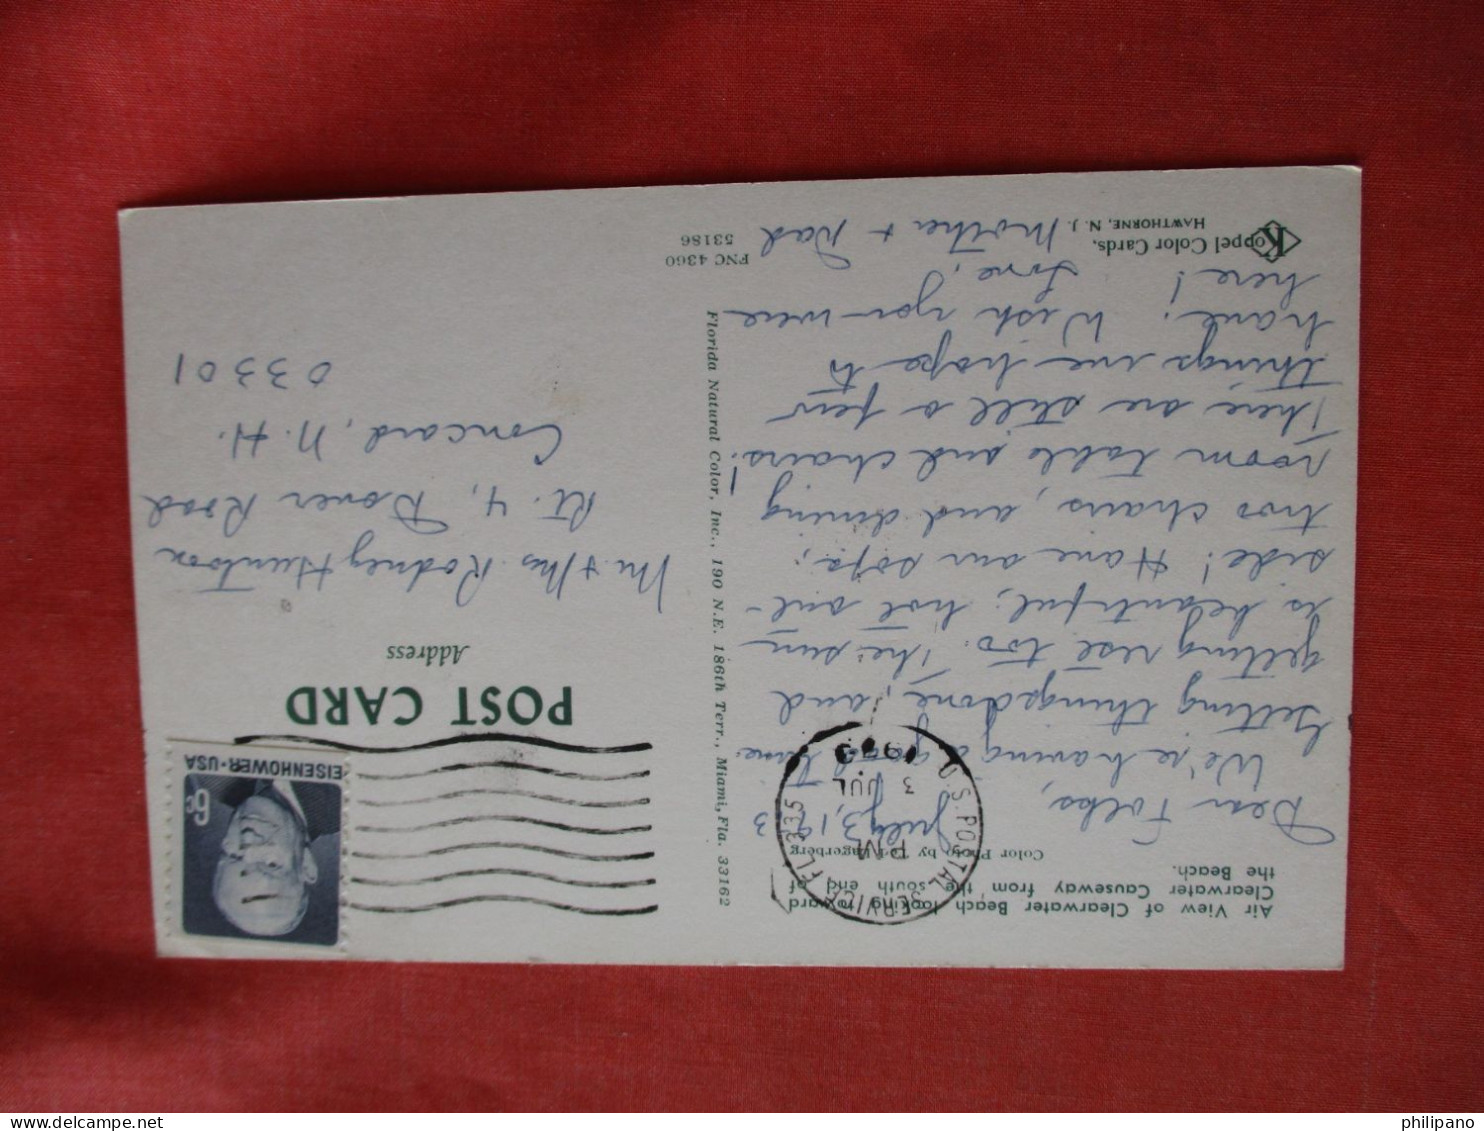 Air View of Clearwater Beach looking toward
Clearwater Causeway from the south end of
the Beach.
Color Photo by Ted Lagerberg
July 3, 1973
Dear Folks,
We're having a good time
getting things done, and
getting rest too. The sun
is beautiful; hot out-
side! Have our sofa,
two chairs, and dining
room table and chairs!
There are still a few
things we hope to
have. Wish you were
here!
Love,
Mother + Dad
Koppel Color Cards,
HAWTHORNE, N. J.
FNC 4360
53186
Florida Natural Color, Inc., 190 N.E. 186th Terr., Miami, Fla. 33162
U.S. POSTAL SERVICE FL 335
PM
3
JUL
POST CARD
Address
EISENHOWER·USA
6c
Mr. & Mrs. Rodney Huntoon
Rt. 4, Dover Road
Concord, N. H.
03301
philipano